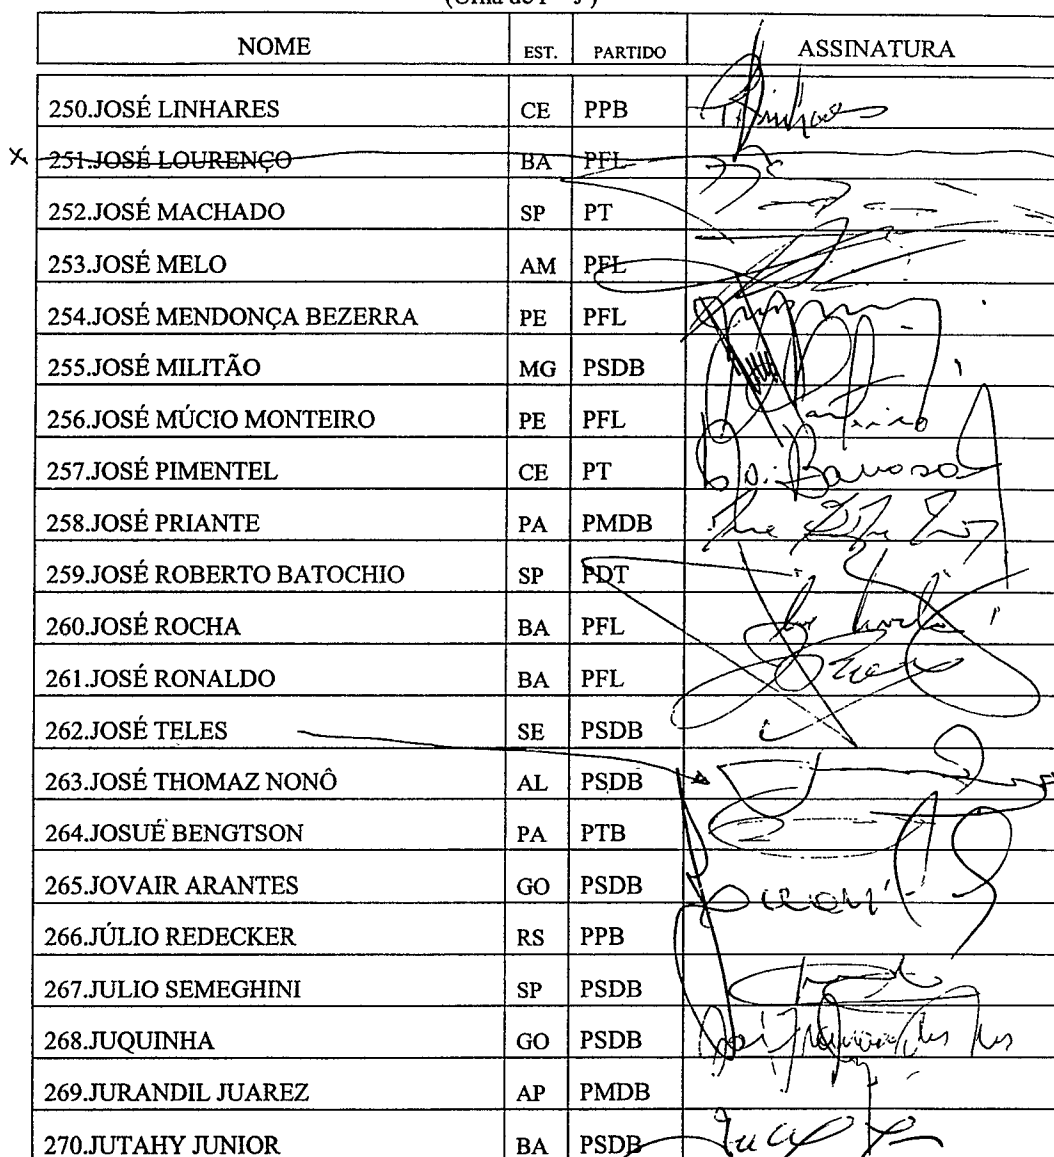 NOME EST. PARTIDO ASSINATURA
250.JOSÉ LINHARES CE PPB
x 251.JOSÉ LOURENÇO BA PFL
252.JOSÉ MACHADO SP PT
253.JOSÉ MELO AM PFL
254.JOSÉ MENDONÇA BEZERRA PE PFL
255.JOSÉ MILITÃO MG PSDB
256.JOSÉ MÚCIO MONTEIRO PE PFL
257.JOSÉ PIMENTEL CE PT
258.JOSÉ PRIANTE PA PMDB
259.JOSÉ ROBERTO BATOCHIO SP PDT
260.JOSÉ ROCHA BA PFL
261.JOSÉ RONALDO BA PFL
262.JOSÉ TELES SE PSDB
263.JOSÉ THOMAZ NONÔ AL PSDB
264.JOSUÉ BENGTSON PA PTB
265.JOVAIR ARANTES GO PSDB
266.JÚLIO REDECKER RS PPB
267.JULIO SEMEGHINI SP PSDB
268.JUQUINHA GO PSDB
269.JURANDIL JUAREZ AP PMDB
270.JUTAHY JUNIOR BA PSDB